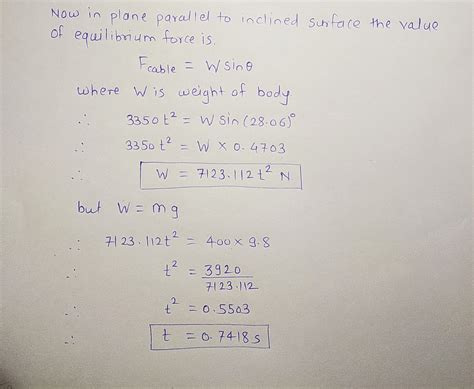 Now in plane parallel to inclined surface the value
of equilibrium force is.
Fcable = W sinθ
where W is weight of body
∴ 3350 t² = W sin (28.06)°
∴ 3350 t² = W × 0.4703
∴ W = 7123.112 t² N
but W = mg
∴ 7123.112t² = 400 × 9.8
∴ t² = 3920 / 7123.112
∴ t² = 0.5503
∴ t = 0.7418 s